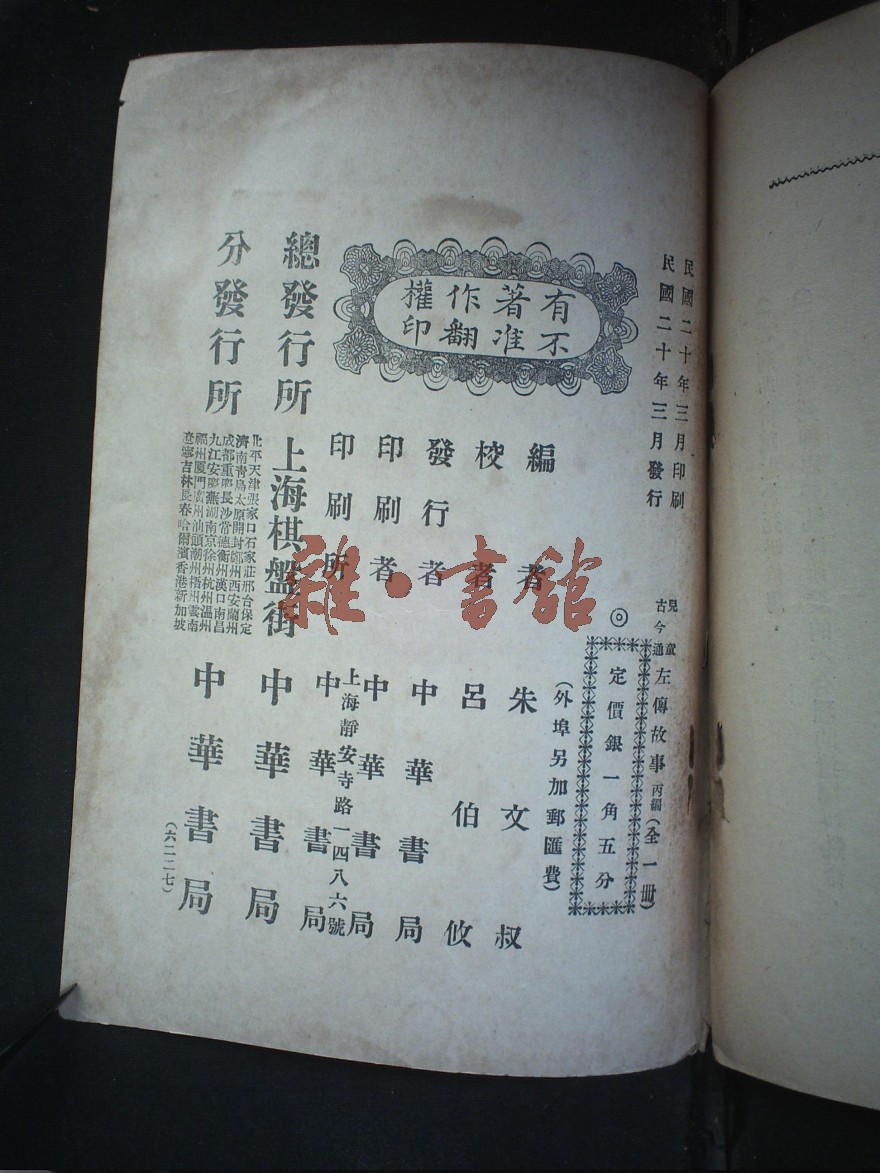 民國二十年三月印刷
民國二十年三月發行
兒童
古今通
左傳故事
丙編
(全一冊)
◎
定價銀一角五分
(外埠另加郵匯費)
有著作權
不准翻印
編者 朱文叔
校者 呂伯攸
發行者 中華書局
印刷者 中華書局
印刷所 上海靜安寺路一四八六號
中華書局
總發行所 上海棋盤街 中華書局
分發行所
北平天津張家口石家莊邢台保定
濟南青島太原開封鄭州西安蘭州
成都重慶長沙常德衡州漢口南昌
九江安慶蕪湖南京徐州杭州溫州
福州廈門廣州汕頭潮州梧州雲南
遼寧吉林長春哈爾濱香港新加坡
中華書局
(六二二七)
雜·書舘